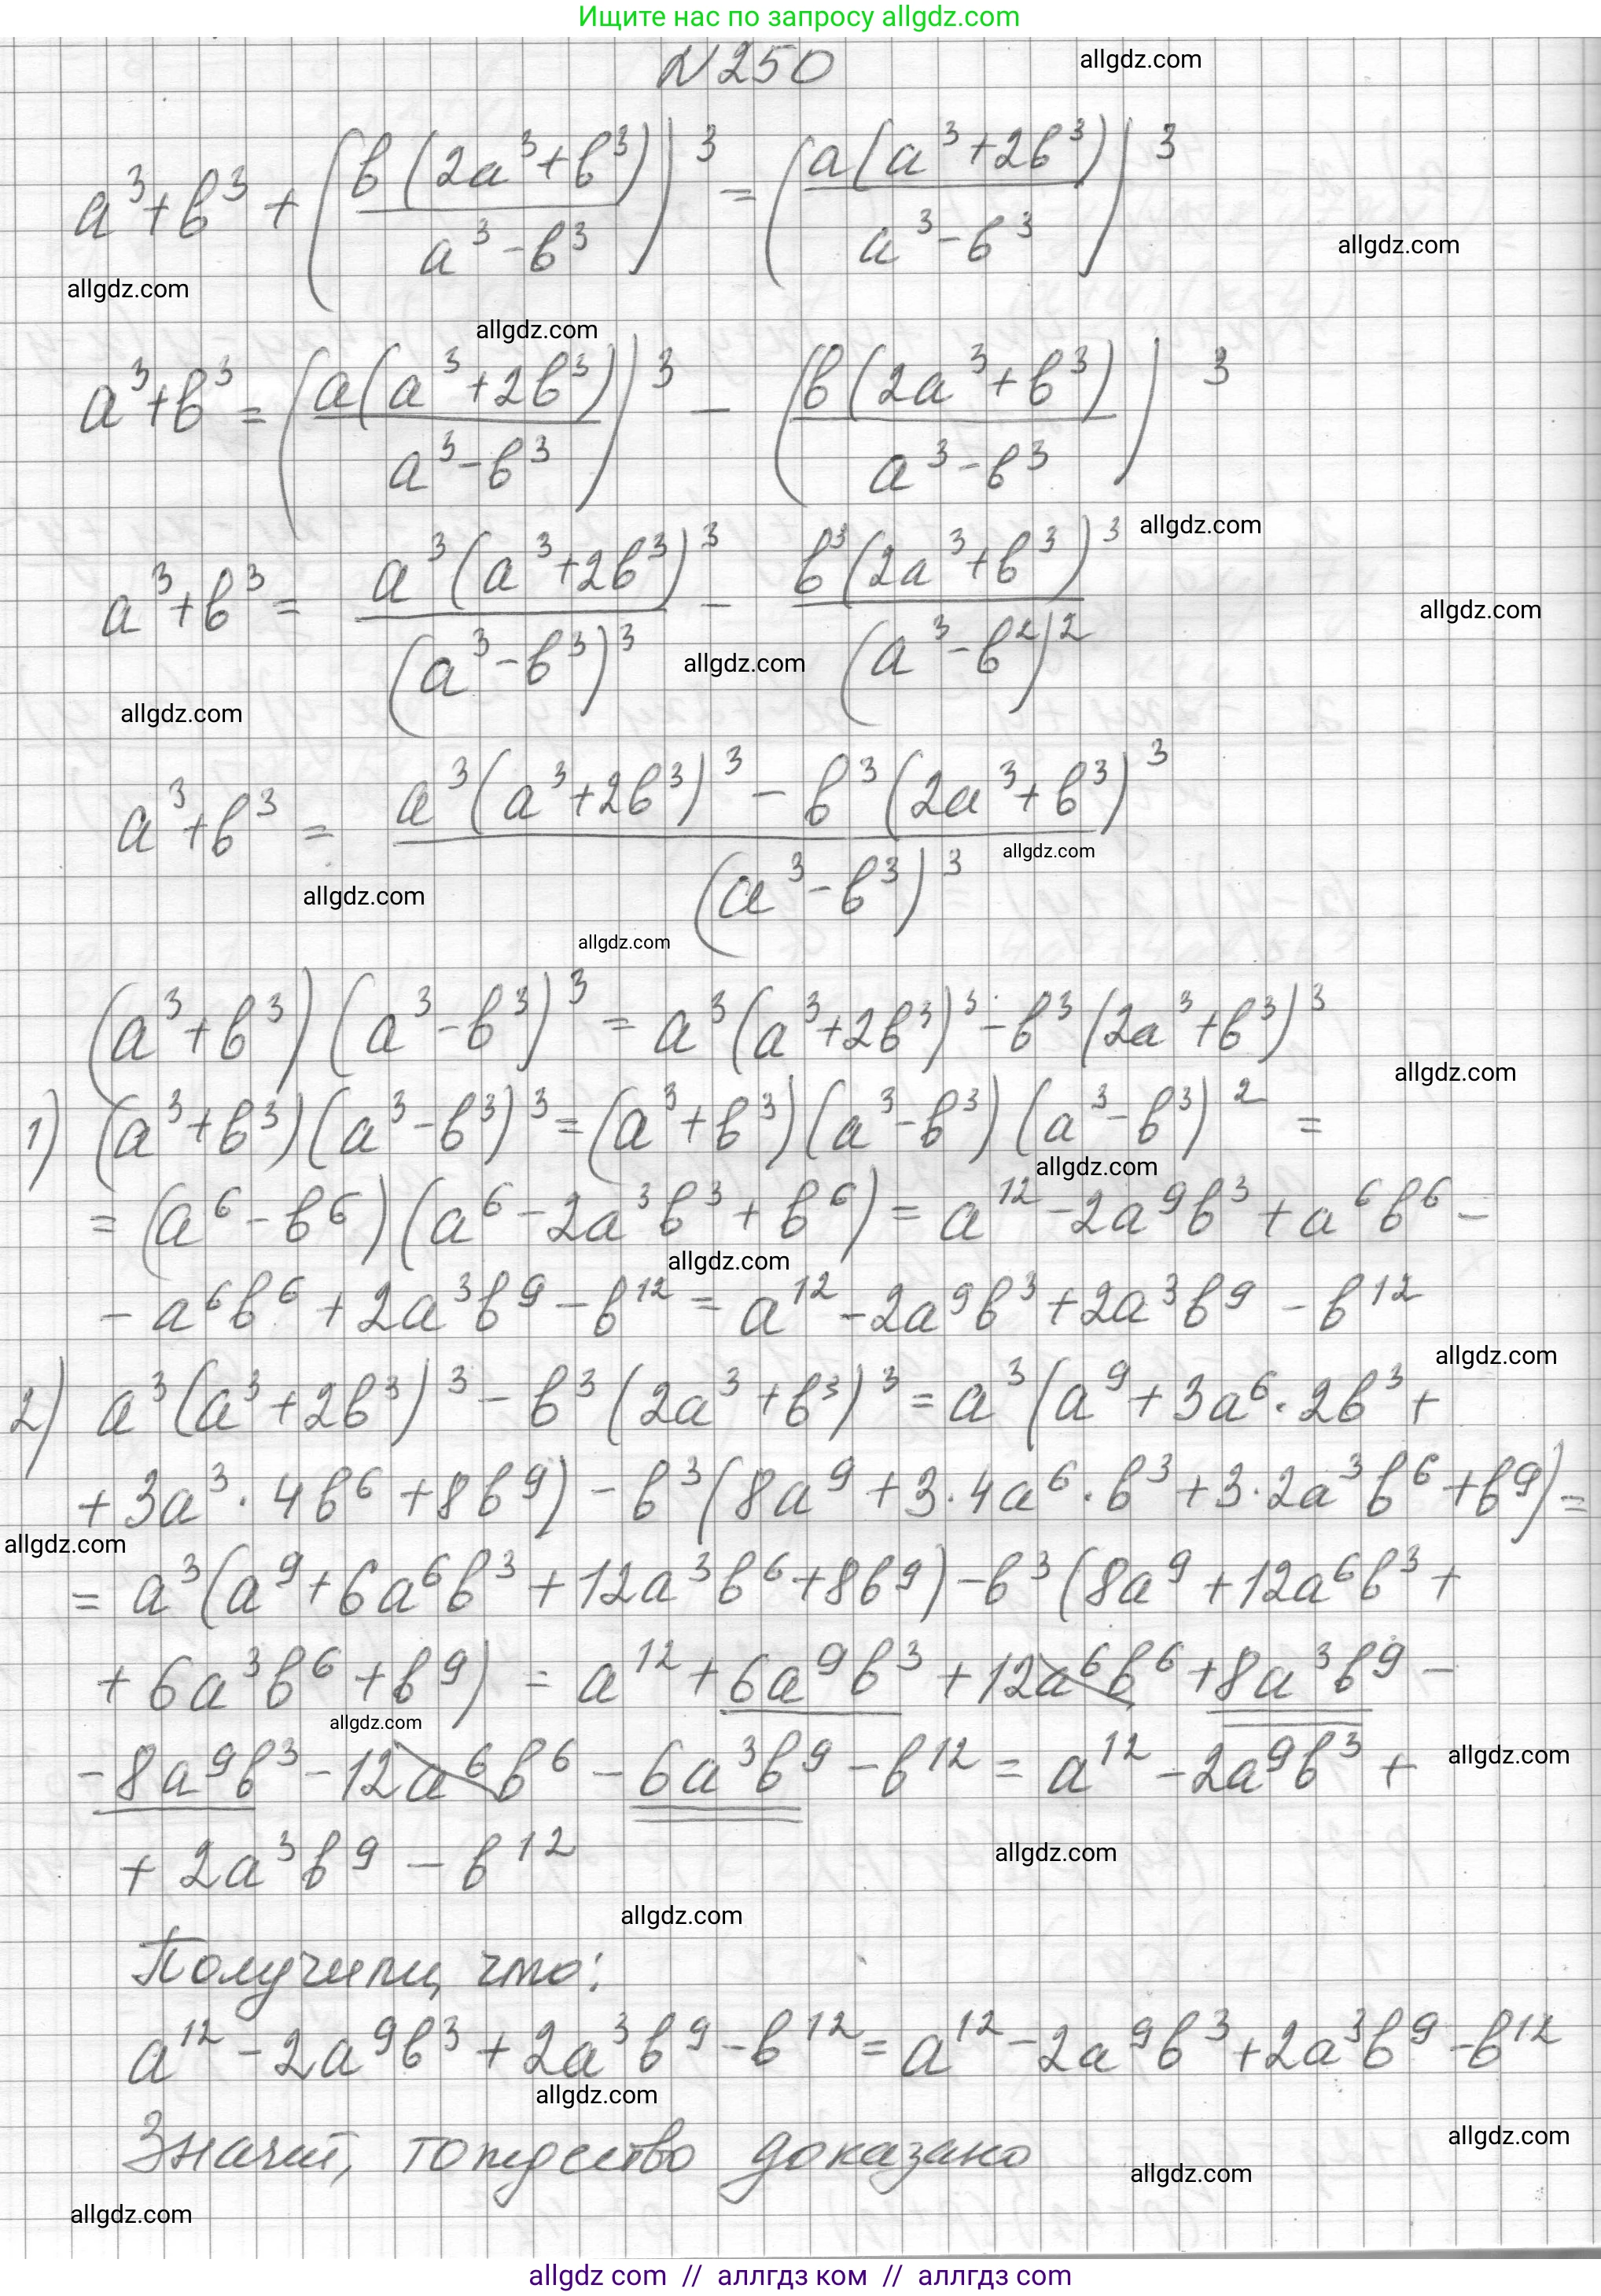 Ищите нас по запросу allgdz.com
N250 allgdz.com
a³+b³+(b(2a³+b³)/(a³-b³))³=(a(a³+2b³)/(a³-b³))³
allgdz.com
allgdz.com
allgdz.com
a³+b³=(a(a³+2b³)/(a³-b³))³-(b(2a³+b³)/(a³-b³))³
allgdz.com
a³+b³=a³(a³+2b³)³/(a³-b³)³-b³(2a³+b³)³/(a³-b²)²
allgdz.com
allgdz.com
allgdz.com
a³+b³=(a³(a³+2b³)³-b³(2a³+b³)³)/(a³-b³)³
allgdz.com
allgdz.com
allgdz.com
(a³+b³)(a³-b³)³=a³(a³+2b³)³-b³(2a³+b³)³
allgdz.com
1) (a³+b³)(a³-b³)³=(a³+b³)(a³-b³)(a³-b³)²=
allgdz.com
=(a⁶-b⁶)(a⁶-2a³b³+b⁶)=a¹²-2a⁹b³+a⁶b⁶-
allgdz.com
-a⁶b⁶+2a³b⁹-b¹²=a¹²-2a⁹b³+2a³b⁹-b¹²
allgdz.com
2) a³(a³+2b³)³-b³(2a³+b³)³=a³(a⁹+3a⁶·2b³+
+3a³·4b⁶+8b⁹)-b³(8a⁹+3·4a⁶·b³+3·2a³b⁶+b⁹)=
allgdz.com
=a³(a⁹+6a⁶b³+12a³b⁶+8b⁹)-b³(8a⁹+12a⁶b³+
+6a³b⁶+b⁹)=a¹²+6a⁹b³+12a⁶b⁶+8a³b⁹-
allgdz.com
-8a⁹b³-12a⁶b⁶-6a³b⁹-b¹²=a¹²-2a⁹b³+
allgdz.com
+2a³b⁹-b¹²
allgdz.com
allgdz.com
Получили, что:
a¹²-2a⁹b³+2a³b⁹-b¹²=a¹²-2a⁹b³+2a³b⁹-b¹²
allgdz.com
Значит, тождество доказано
allgdz.com
allgdz.com
allgdz.com
allgdz com // аллгдз ком // аллгдз com